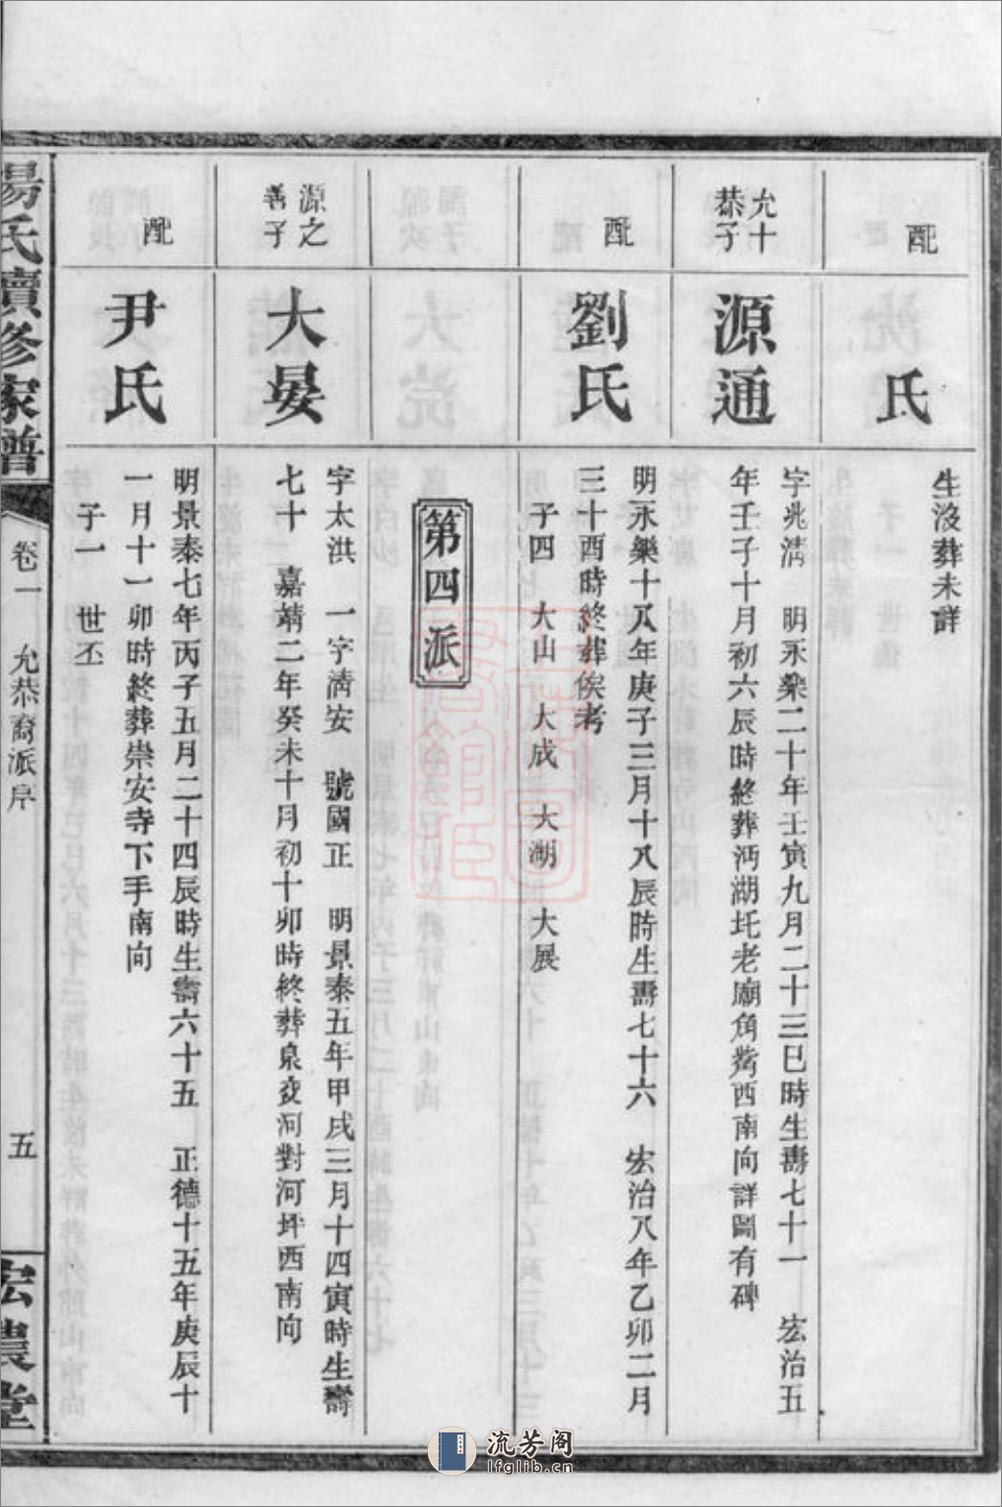 配
氏
生沒葬未詳
允十
恭子
源通
字兆淸　明永樂二十年壬寅九月二十三巳時生壽七十一　宏治五
年壬子十月初六辰時終葬沔湖圫老廟角嘴西南向詳圖有碑
配
劉氏
明永樂十八年庚子三月十八辰時生壽七十六　宏治八年乙卯二月
三十酉時終葬俟考
子四　大山　大成　大湖　大展
第四派
源之
善子
大晏
字太洪　一字淸安　號國正　明景泰五年甲戌三月十四寅時生壽
七十　嘉靖二年癸未十月初十卯時終葬泉交河對河坪西南向
配
尹氏
明景泰七年丙子五月二十四辰時生壽六十五　正德十五年庚辰十
一月十一卯時終葬崇安寺下手南向
子一　世丕
楊氏續修家譜
卷一　允恭裔派序
五
宏農堂
流芳阁
lfglib.cn